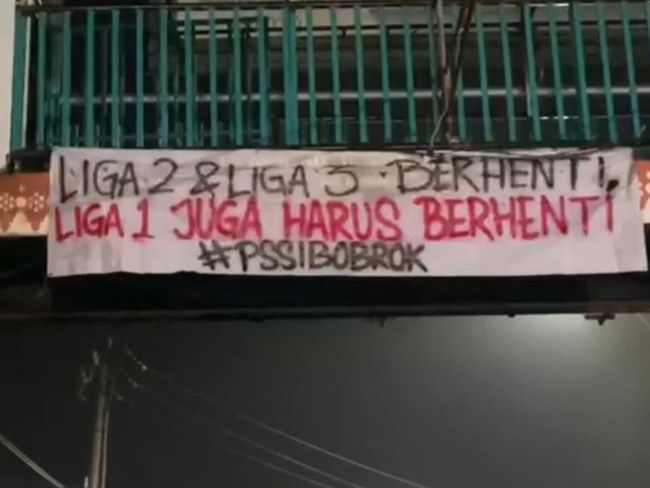 LIGA 2 & LIGA 3 BERHENTI,
LIGA 1 JUGA HARUS BERHENTI
#PSSIBOBROK